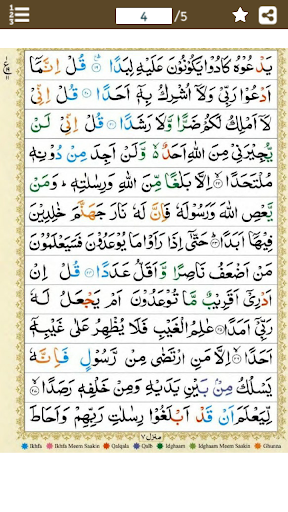 4 /5
يَدْعُوْهُ كَادُوْا يَكُوْنُوْنَ عَلَيْهِ لِبَدًا ۝۱۹ قُلْ اِنَّمَاۤ
اَدْعُوْا رَبِّیْ وَلَاۤ اُشْرِكُ بِهٖۤ اَحَدًا ۝۲۰ قُلْ اِنِّیْ
لَاۤ اَمْلِكُ لَكُمْ ضَرًّا وَّلَا رَشَدًا ۝۲۱ قُلْ اِنِّیْ لَنْ
یُّجِیْرَنِیْ مِنَ اللّٰهِ اَحَدٌ ۙ۬ وَّلَنْ اَجِدَ مِنْ دُوْنِهٖ
مُلْتَحَدًا ۝۲۲ اِلَّا بَلٰغًا مِّنَ اللّٰهِ وَرِسٰلٰتِهٖ ؕ وَمَنْ
یَّعْصِ اللّٰهَ وَرَسُوْلَهٗ فَاِنَّ لَهٗ نَارَ جَهَنَّمَ خٰلِدِیْنَ
فِیْهَاۤ اَبَدًا ۝۲۳ حَتّٰۤی اِذَا رَاَوْا مَا یُوْعَدُوْنَ فَسَیَعْلَمُوْنَ
مَنْ اَضْعَفُ نَاصِرًا وَّاَقَلُّ عَدَدًا ۝۲۴ قُلْ اِنْ
اَدْرِیْۤ اَقَرِیْبٌ مَّا تُوْعَدُوْنَ اَمْ یَجْعَلُ لَهٗ
رَبِّیْۤ اَمَدًا ۝۲۵ عٰلِمُ الْغَیْبِ فَلَا یُظْهِرُ عَلٰی غَیْبِهٖۤ
اَحَدًا ۝۲۶ اِلَّا مَنِ ارْتَضٰی مِنْ رَّسُوْلٍ فَاِنَّهٗ
یَسْلُكُ مِنْۢ بَیْنِ یَدَیْهِ وَمِنْ خَلْفِهٖ رَصَدًا ۝۲۷
لِّیَعْلَمَ اَنْ قَدْ اَبْلَغُوْا رِسٰلٰتِ رَبِّهِمْ وَاَحَاطَ
منزل ۷
Ikhfa Ikhfa Meem Saakin Qalqala Qalb Idghaam Idghaam Meem Saakin Ghunna